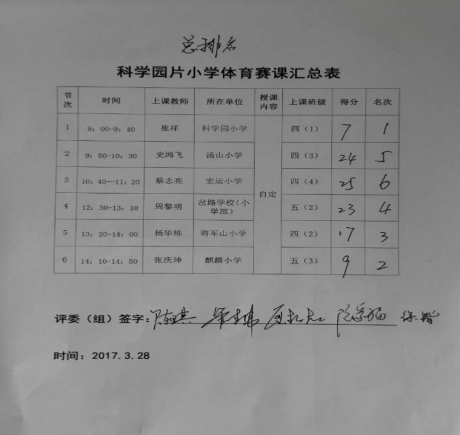 总排名
科学园片小学体育赛课汇总表
节次 时间 上课教师 所在单位 授课内容 上课班级 得分 名次
1 9:00-9:40 崔祥 科学园小学 自定 四（1） 7 1
2 9:50-10:30 史鸿飞 汤山小学 四（3） 24 5
3 10:40—11:20 蔡志亮 宏运小学 四（4） 25 6
4 12:30-13:10 周黎明 岔路学校（小学部） 五（2） 23 4
5 13:20-14:00 杨华栋 将军山小学 四（2） 17 3
6 14:10-14:50 张庆坤 麒麟小学 五（3） 9 2
评委（组）签字：
时间：2017.3.28